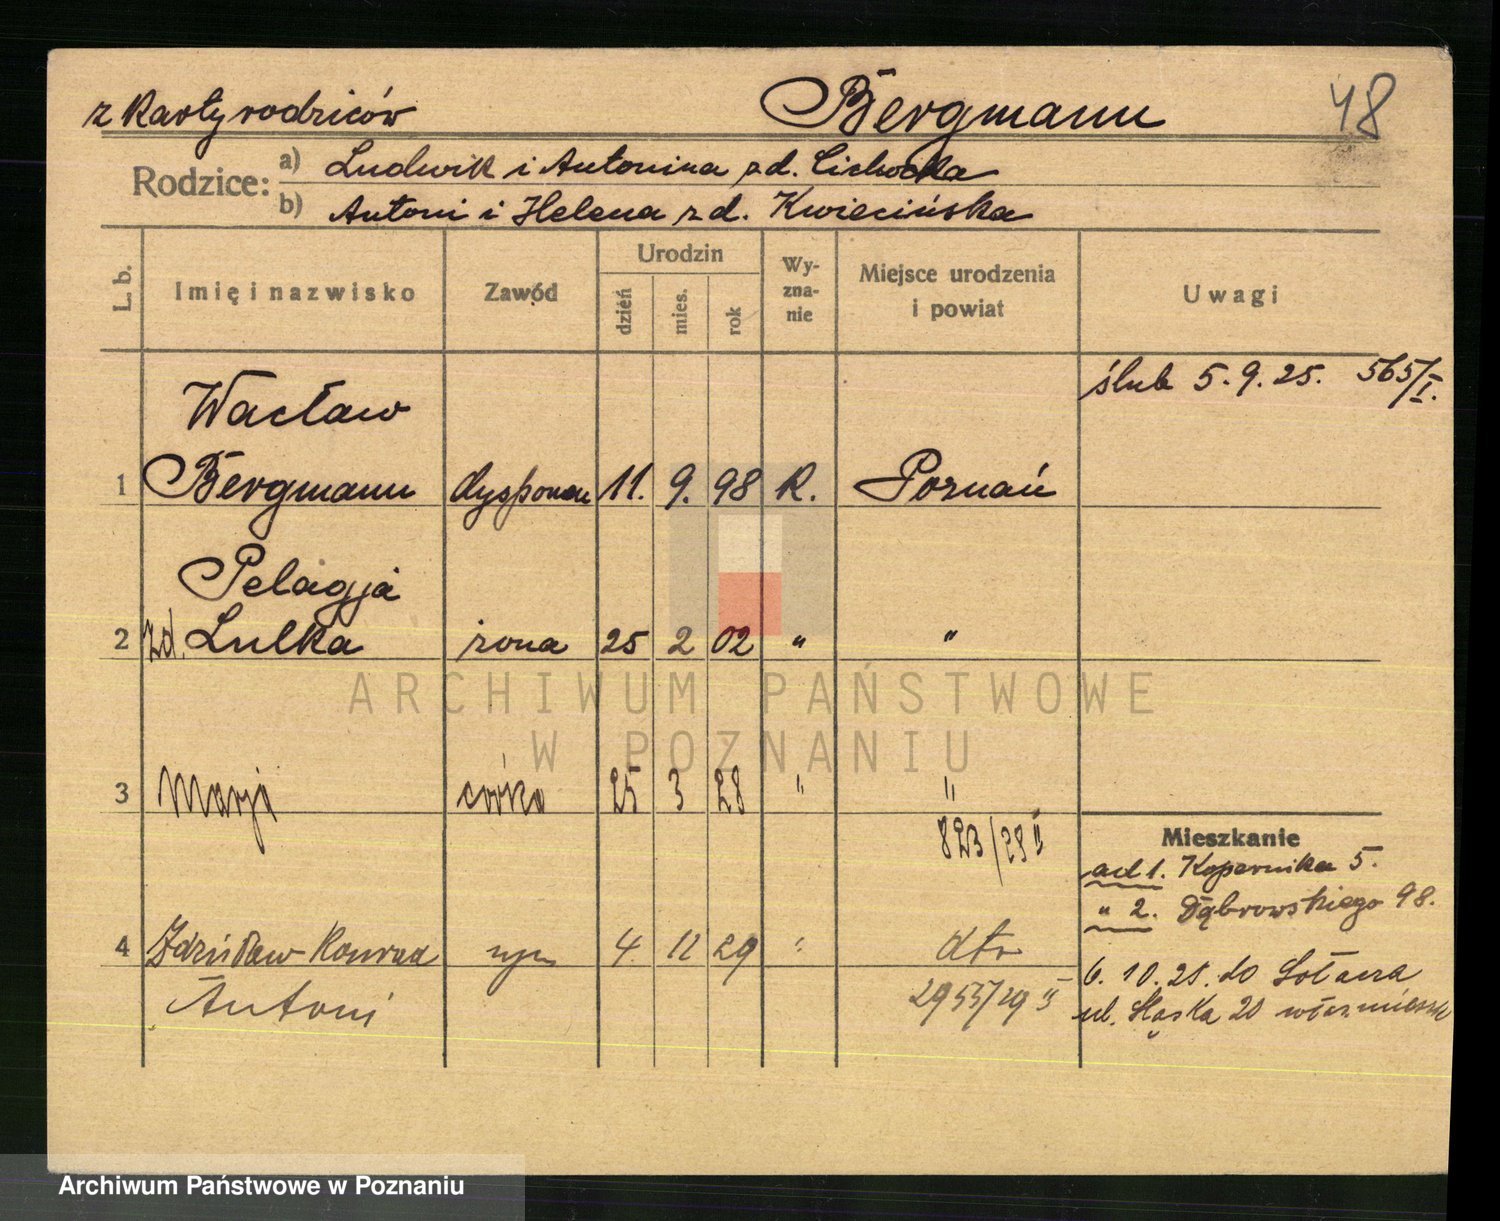 z Karty rodziców Bergmann 48
Rodzice: a) Ludwik i Antonina z d. Cichocka
b) Antoni i Helena z d. Kwiecińska
L. b. Imię i nazwisko Zawód Urodzin dzień mies. rok Wy-zna-nie Miejsce urodzenia i powiat Uwagi
ślub 5.9.25. 565/I.
Wacław
1 Bergmann dysponen 11. 9. 98 R. Poznań
Pelagja
2 zd. Lulka żona 25 2 02 " "
ARCHIWUM PAŃSTWOWE
W POZNANIU
3 Marja córka 25 3 28 " "
823/28 II
Mieszkanie
ad 1. Kopernika 5.
" 2. Dąbrowskiego 98.
4 Zdzisław Konrad syn 4 12 29 " dto
Antoni
2953/29 II
6.10.28. do Sołacza
ul. Śląska 20
Archiwum Państwowe w Poznaniu